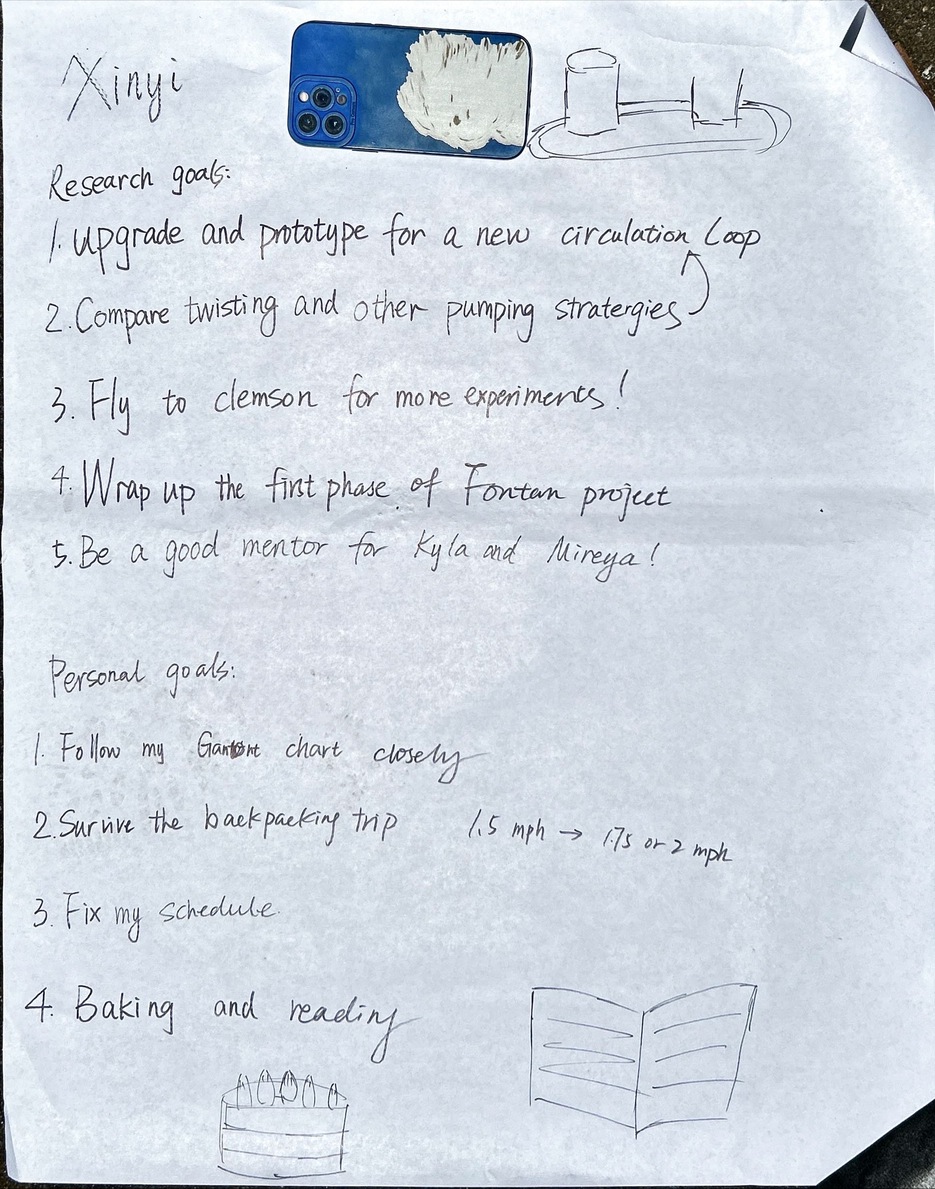 Xinyi
Research goals:
1. upgrade and prototype for a new circulation Loop
2. Compare twisting and other pumping stratergies
3. Fly to clemson for more experiments!
4. Wrap up the first phase of Fontan project
5. Be a good mentor for Kyla and Mireya!
Personal goals:
1. Follow my chart closely
2. Survive the backpacking trip 1.5 mph → 1.75 or 2 mph
3. Fix my schedule.
4. Baking and reading